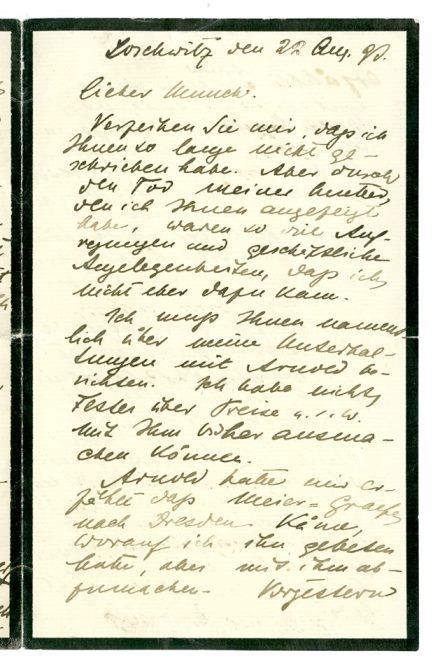 Loschwitz den 22 Aug. 93.
Lieber Munch.
Verzeihen Sie mir, dass ich
Ihnen so lange nicht ge-
schrieben habe. Aber durch
den Tod meiner Mutter,
den ich Ihnen angezeigt
habe, waren so viel Auf-
regungen und geschäftliche
Angelegenheiten, dass ich
nicht eher dazu kam.
Ich muss Ihnen nament-
lich über meine Unterhal-
tungen mit Arnold be-
richten. Ich habe nichts
Festes über Preise u.s.w.
mit Ihm bisher ausma-
chen können.
Arnold hatte mir er-
zählt dass Meier=Graefe
nach Dresden käme,
worauf ich ihn gebeten
hatte, alles mit ihm ab-
zumachen. Vorgestern